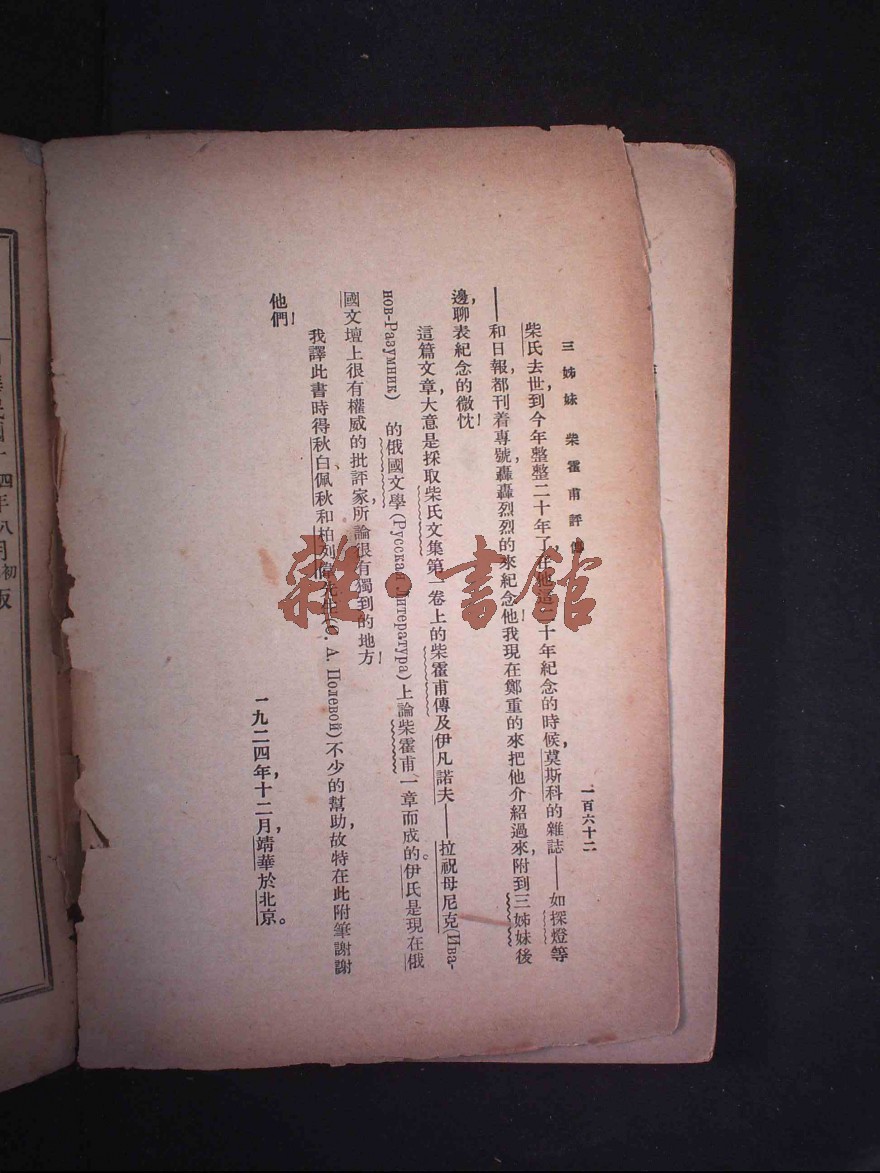 三姊妹 柴霍甫評傳
一百六十二
柴氏去世,到今年整整二十年了,在他這二十年紀念的時候,莫斯科的雜誌——如探燈等
——和日報,都刊着專號,轟轟烈烈的來紀念他!我現在鄭重的來把他介紹過來,附到三姊妹後
邊,聊表紀念的微忱!
這篇文章,大意是採取柴氏文集第一卷上的柴霍甫傳及伊凡諾夫——拉祝母尼克(Ива-
нов-Разумник) 的俄國文學(Русская Литература)上論柴霍甫一章而成的。伊氏是現在俄
國文壇上很有權威的批評家,所論很有獨到的地方!
我譯此書時得秋白、佩秋和柏列偉先生(С. А. Полевой)不少的幫助,故特在此附筆謝謝
他們!
一九二四年,十二月,靖華於北京。
國十四年八月初版
雜·書館